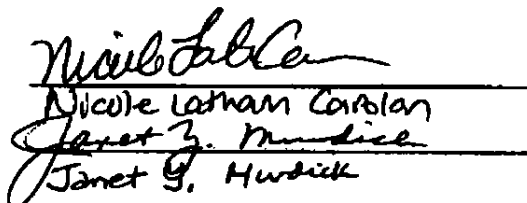 Nicole Lat Ca
Nicole Latham Carolan
Janet Y. Murdick
Janet Y. Murdick